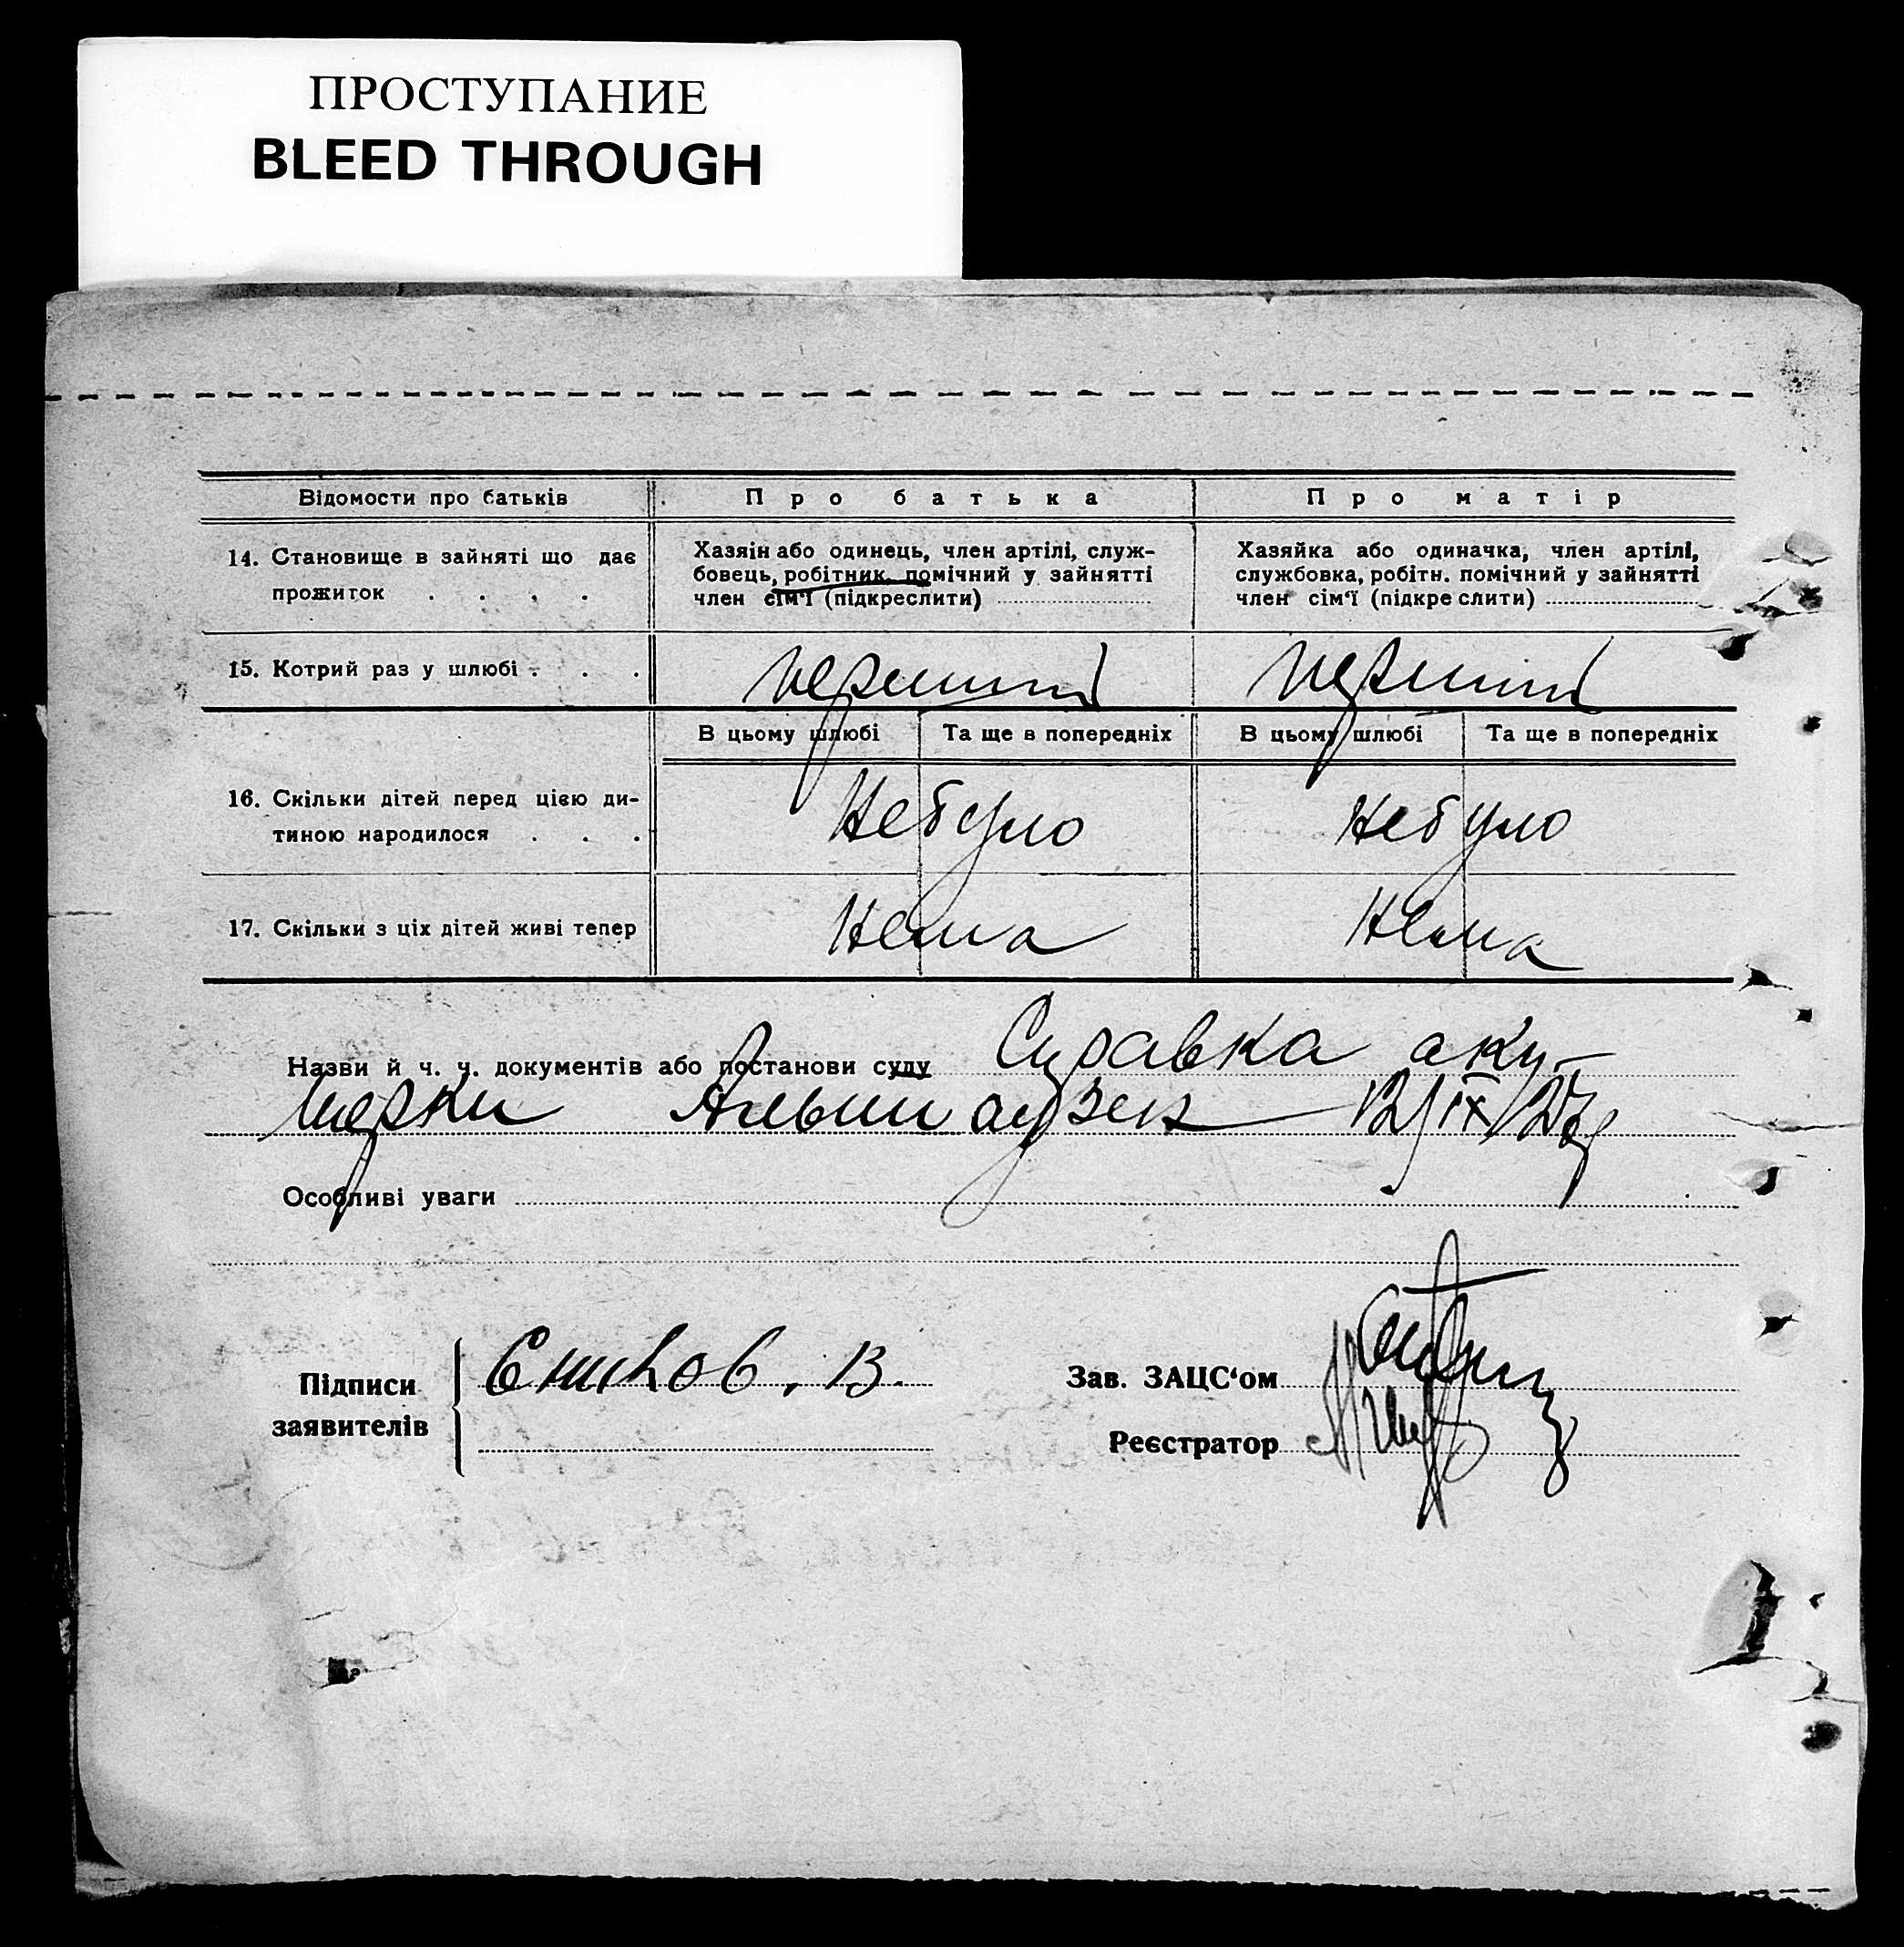 ПРОСТУПАНИЕ
BLEED THROUGH
Відомости про батьків
Про батька
Про матір
14. Становище в зайняті що дає
прожиток . . . .
Хазяїн або одинець, член артілі, служ-
бовець, робітник, помічний у зайнятті
член сім'ї (підкреслити)
Хазяйка або одиначка, член артілі,
службовка, робітн. помічний у зайнятті
член сім'ї (підкреслити)
15. Котрий раз у шлюбі . . .
перший
перший
В цьому шлюбі
Та ще в попередніх
В цьому шлюбі
Та ще в попередніх
16. Скільки дітей перед цією ди-
тиною народилося . . .
Небуло
Небуло
17. Скільки з ціх дітей живі тепер
Нема
Нема
Назви й ч. ч. документів або постанови суду Справка аку-
шерки 12/IX/27
Особливі уваги
Підписи
заявителів
Зав. ЗАЦС'ом
Реєстратор